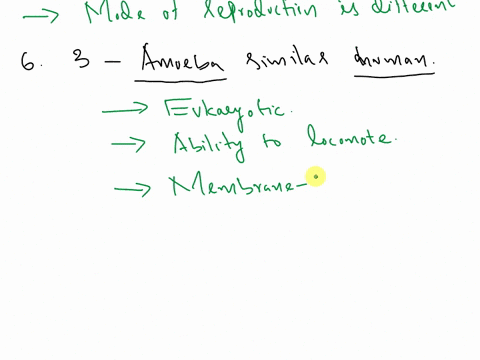 → Mode of reproduction is different
6. 3 - Amoeba similar human.
→ Eukaryotic.
→ Ability to locomote.
→ Membrane-